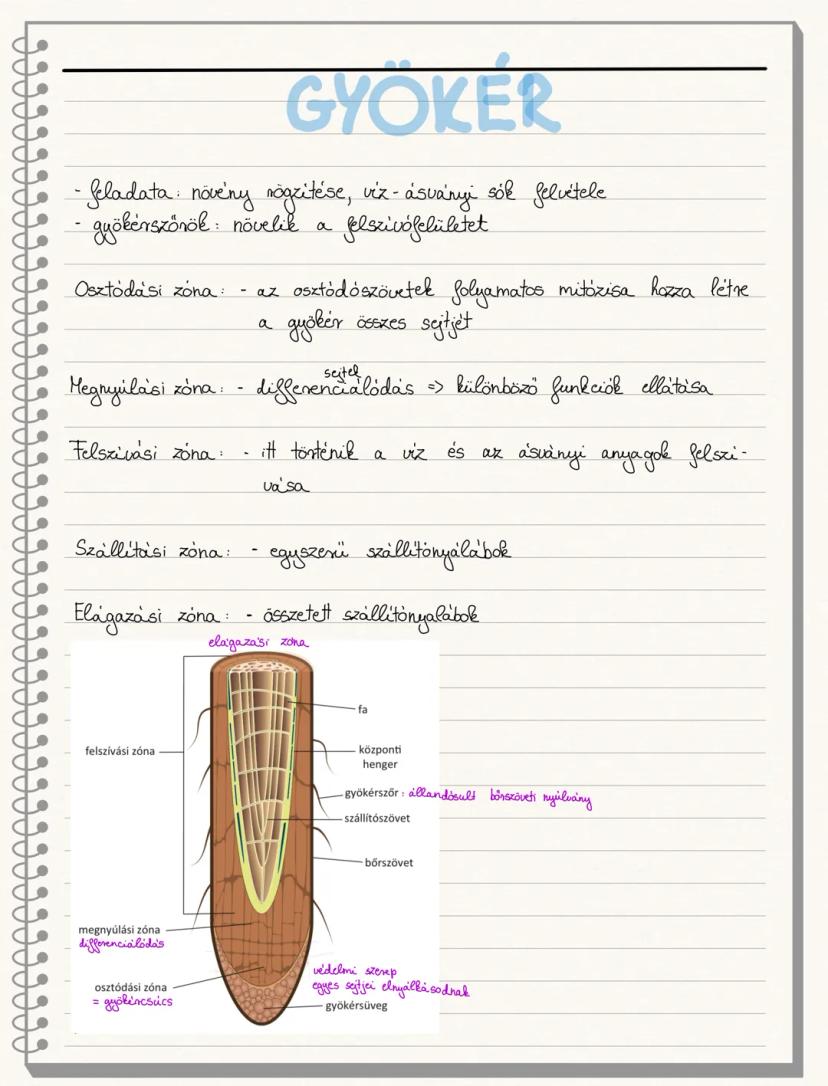 GYÖKÉR
- feladata: növény rögzítése, víz-ásványi sók felvétele
- gyökérszőrök: növelik a felszívófelületet
Osztódási zóna: - az osztódószövetek folyamatos mitózisa hozza létre
a gyökér összes sejtjét
sejtek
Megnyúlási zóna: - differenciálódás => különböző funkciók ellátása
Felszívási zóna: - itt történik a víz és az ásványi anyagok felszí-
vása
Szállítási zóna: - egyszerű szállítónyálábok
Elágazási zóna: - összetett szállítónyalábok
elágazási zóna
fa
felszívási zóna
központi
henger
gyökérszőr : állandósult bőrszöveti nyúlvány
szállítószövet
bőrszövet
megnyúlási zóna
differenciálódás
védelmi szerep
egyes sejtjei elnyálkásodnak
osztódási zóna
= gyökércsúcs
gyökérsüveg